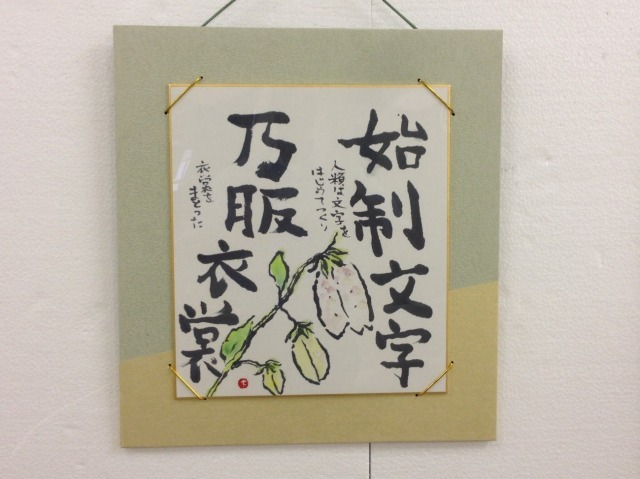 始制文字
人類は文字を
はじめてつくり
乃服衣裳
衣裳を
まとった